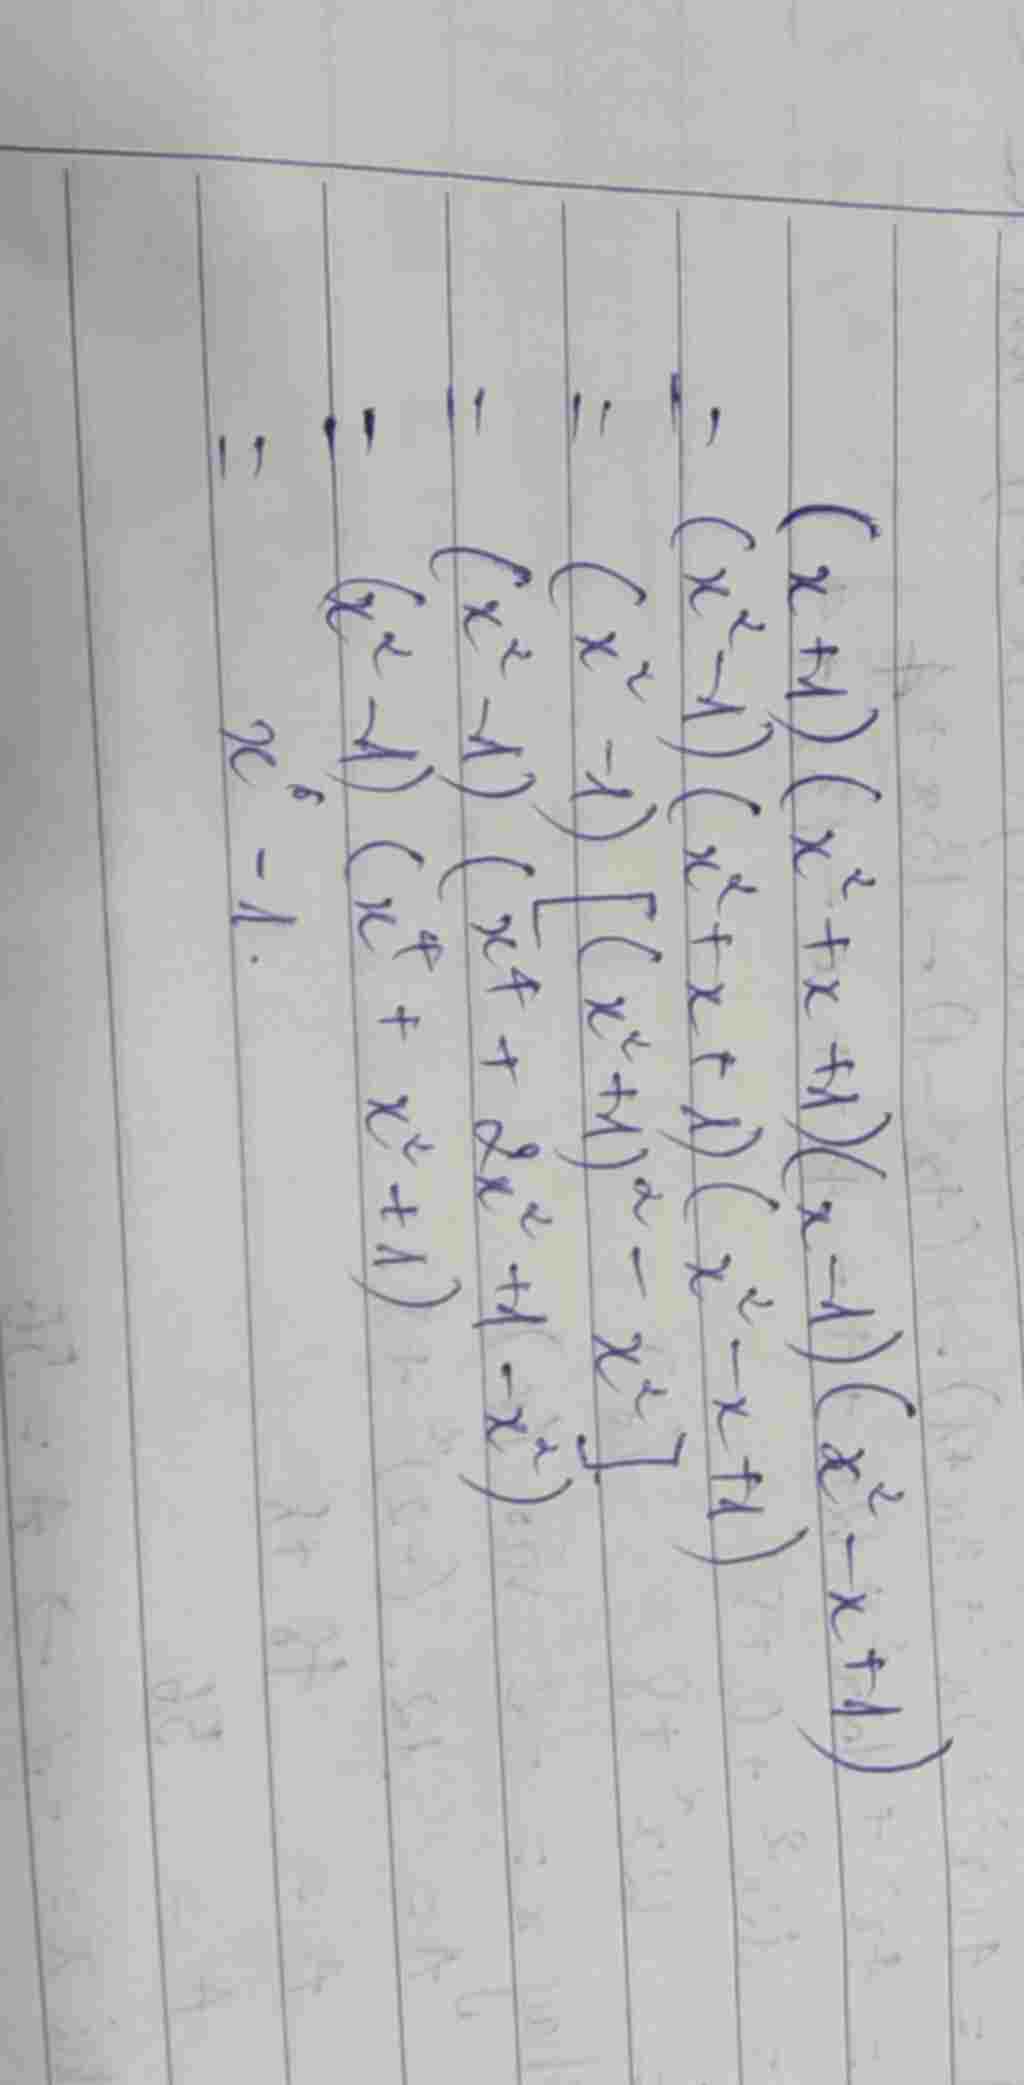 (x+1)(x²+x+1)(x-1)(x²-x+1)
= (x²-1)(x²+x+1)(x²-x+1)
= (x²-1)[(x²+1)²-x²]
= (x²-1)(x⁴+2x²+1-x²)
= (x²-1)(x⁴+x²+1)
= x⁶-1.